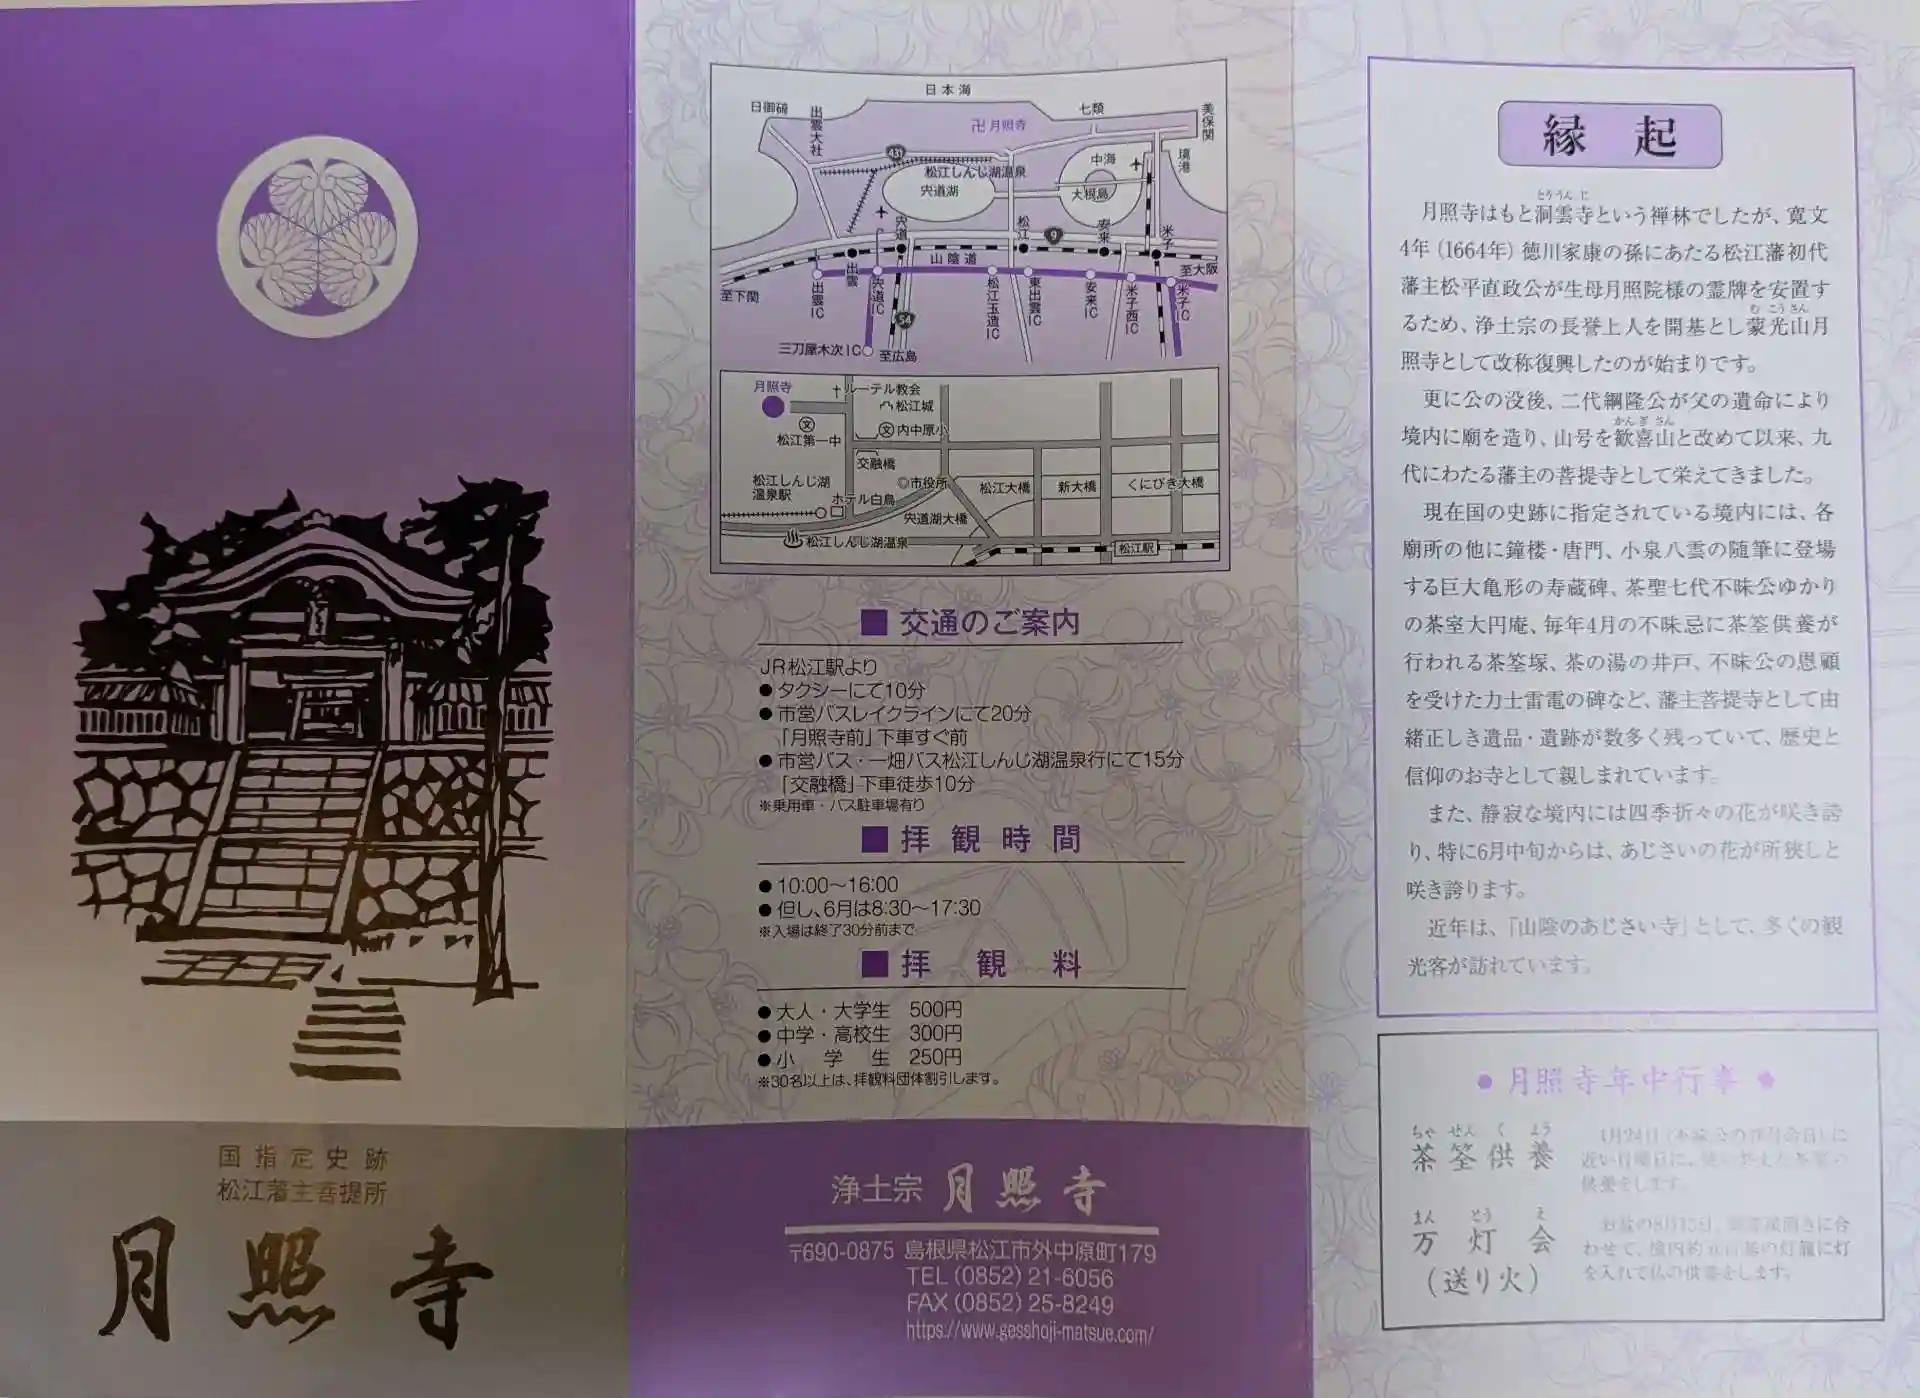 国指定史跡
松江藩主菩提所
月照寺
日本海
日御碕
出雲大社
卍月照寺
七類
美保関
境港
431
松江しんじ湖温泉
宍道湖
中海
大根島
宍道
松江
9
安来
米子
山陰道
至大阪
至下関
出雲
出雲IC
宍道IC
松江玉造IC
東出雲IC
安来IC
米子西IC
米子IC
54
三刀屋木次IC
至広島
月照寺
ルーテル教会
松江城
文
松江第一中
文内中原小
交融橋
松江しんじ湖
温泉駅
◎市役所
ホテル白鳥
松江大橋
新大橋
くにびき大橋
宍道湖大橋
松江しんじ湖温泉
松江駅
■交通のご案内
JR松江駅より
●タクシーにて10分
●市営バスレイクラインにて20分
「月照寺前」下車すぐ前
●市営バス・一畑バス松江しんじ湖温泉行にて15分
「交融橋」下車徒歩10分
※乗用車・バス駐車場有り
■拝観時間
●10:00～16:00
●但し、6月は8:30～17:30
※入場は終了30分前まで
■拝観料
●大人・大学生 500円
●中学・高校生 300円
●小学生 250円
※30名以上は、拝観料団体割引します。
浄土宗 月照寺
〒690-0875 島根県松江市外中原町179
TEL(0852)21-6056
FAX(0852)25-8249
https://www.gesshoji-matsue.com/
縁起
とううんじ
月照寺はもと洞雲寺という禅林でしたが、寛文
4年(1664年)徳川家康の孫にあたる松江藩初代
藩主松平直政公が生母月照院様の霊牌を安置す
むこうさん
るため、浄土宗の長誉上人を開基とし蒙光山月
照寺として改称復興したのが始まりです。
更に公の没後、二代綱隆公が父の遺命により
かんぎさん
境内に廟を造り、山号を歓喜山と改めて以来、九
代にわたる藩主の菩提寺として栄えてきました。
現在国の史跡に指定されている境内には、各
廟所の他に鐘楼・唐門、小泉八雲の随筆に登場
する巨大亀形の寿蔵碑、茶聖七代不昧公ゆかり
の茶室大円庵、毎年4月の不昧忌に茶筌供養が
行われる茶筌塚、茶の湯の井戸、不昧公の恩顧
を受けた力士雷電の碑など、藩主菩提寺として由
緒正しき遺品・遺跡が数多く残っていて、歴史と
信仰のお寺として親しまれています。
また、静寂な境内には四季折々の花が咲き誇
り、特に6月中旬からは、あじさいの花が所狭しと
咲き誇ります。
近年は、「山陰のあじさい寺」として、多くの観
光客が訪れています。
●月照寺年中行事●
ちゃせんくよう
茶筌供養
近い日曜日に、
供養をします。
まんとうえ
万灯会
(送り火)
お盆の8月
わせて、境内約 の灯籠に灯
を入れて仏の供養をします。